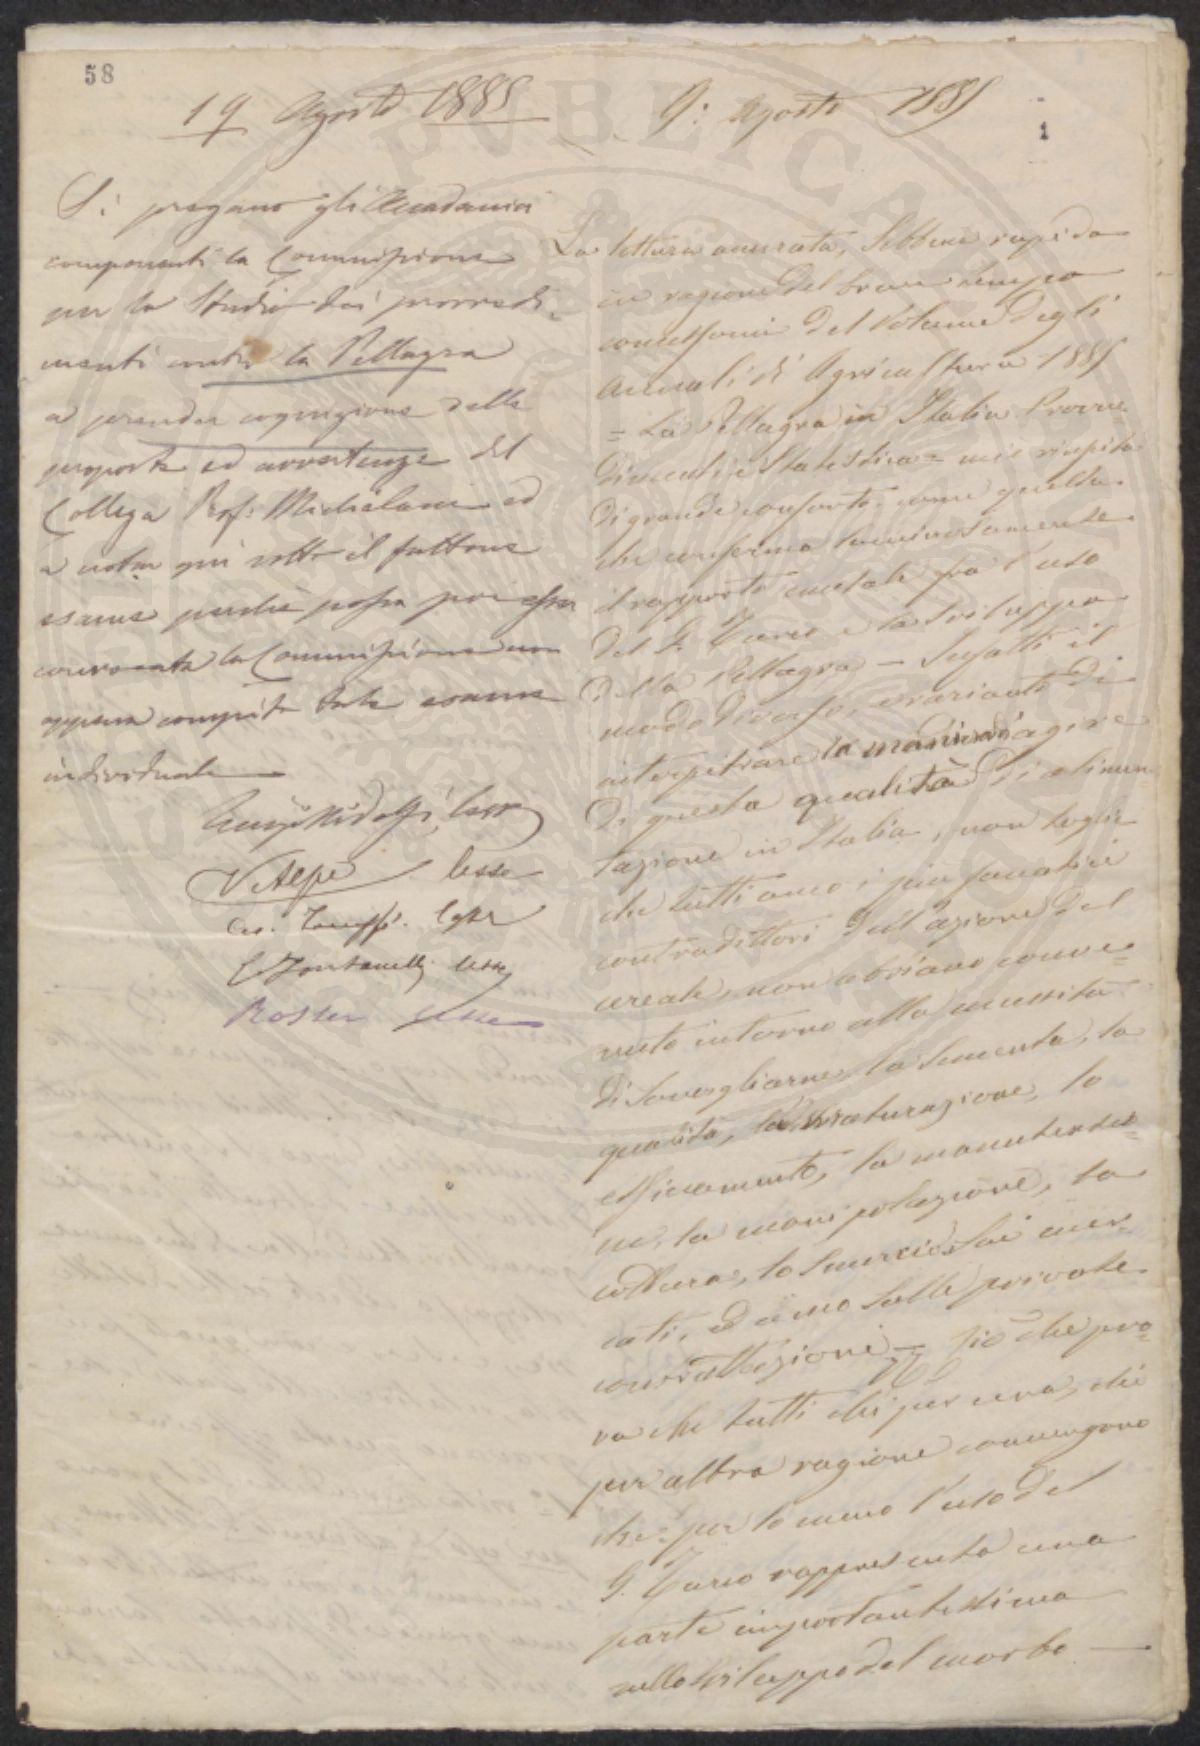 58
19 Agosto 1885
Si pregano gli Accademici
componenti la Commissione
per lo Studio dei provvedi-
menti contro la Pellagra
a prender cognizione delle
proposte ed avvertenze del
Collega Prof: Michelacci ed
a notar qui sotto il fattone
esame perchè possa poi esser
convocata la Commissione non
appena compito tale esame
individuale
Luigi Ridolfi, lesse
V. Alpe lesse
lesse
C Fontanelli lesse
lesse
9: Agosto 1885
1
La lettura accurata, sebbene rapida
in ragione del breve tempo
concessomi del Volume degli
Annali di Agricoltura 1885
= La Pellagra in Italia Provve
dimenti e Statistica = mi è riuscita
di grande conforto, come quella
che conferma luminosamente
il rapporto causale fra l'uso
del G. Turco e lo sviluppo
della Pellagra — Infatti il
modo diverso, e variante di
interpetrare la maniera d'agire
di questa qualità di alimen-
tazione in Italia, non toglie
che tutti anco i più fanatici
contradittori dell'azione del
cereale, non abbiano conve=
nuto intorno alla necessità
di sorvegliarne la sementa, la
qualità, la maturazione, lo
essiccamento, la manutenzio=
ne, la manipolazione, la
cottura, lo smercio sui mer-
cati, ed anco sulle private
contrattazioni — Ciò che pro=
va che tutti chi per una, chi
per altra ragione convengono
che per lo meno l'uso del
G. Turco rappresenta una
parte importantissima
nello sviluppo del morbo —
PVBLICA